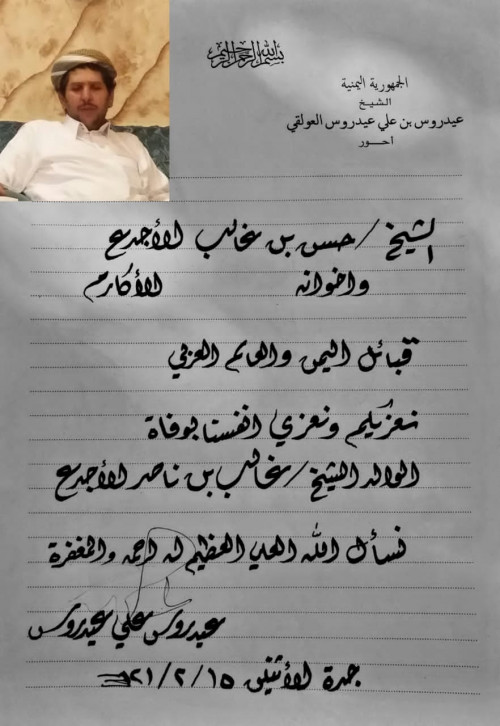 بسم الله الرحمن الرحيم
الجمهورية اليمنية
الشيخ
عيدروس بن علي عيدروس العولقي
احور
الشيخ / حسن بن غالب الأجدع
واخوانه الأكارم
قبائل اليمن والعالم العربي
نعزيكم ونعزي انفسنا بوفاة
الوالد الشيخ / غالب بن ناصر الأجدع
نسأل الله العلي العظيم له الرحمه والمغفرة
عيدروس علي عيدروس
جدة الأثنين ٢١/٢/١٥